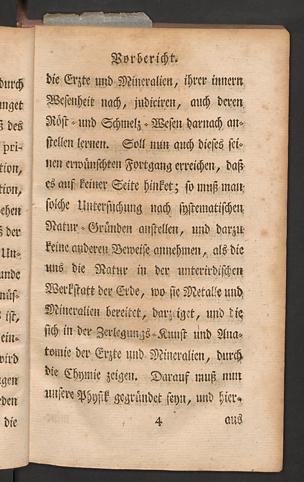 Vorbericht.
die Erzte und Mineralien, ihrer innern
Wesenheit nach, judiciren, auch deren
Röst- und Schmelz-Wesen darnach an-
stellen lernen. Soll nun auch dieses sei-
nen erwünschten Fortgang erreichen, daß
es auf keiner Seite hinket; so muß man
solche Untersuchung nach systematischen
Natur-Gründen anstellen, und darzu
keine anderen Beweise annehmen, als die
uns die Natur in der unterirdischen
Werkstatt der Erde, wo sie Metalle und
Mineralien bereitet, darzeiget, und die
sich in der Zerlegungs-Kunst und Ana-
tomie der Erzte und Mineralien, durch
die Chymie zeigen. Darauf muß nun
unsere Physik gegründet seyn, und hier-
4 aus
durch
ß des
pri-
tion,
tion,
ehen
ß der
Un-
unde
müs-
ist,
ein-
wird
ngen
eden
die